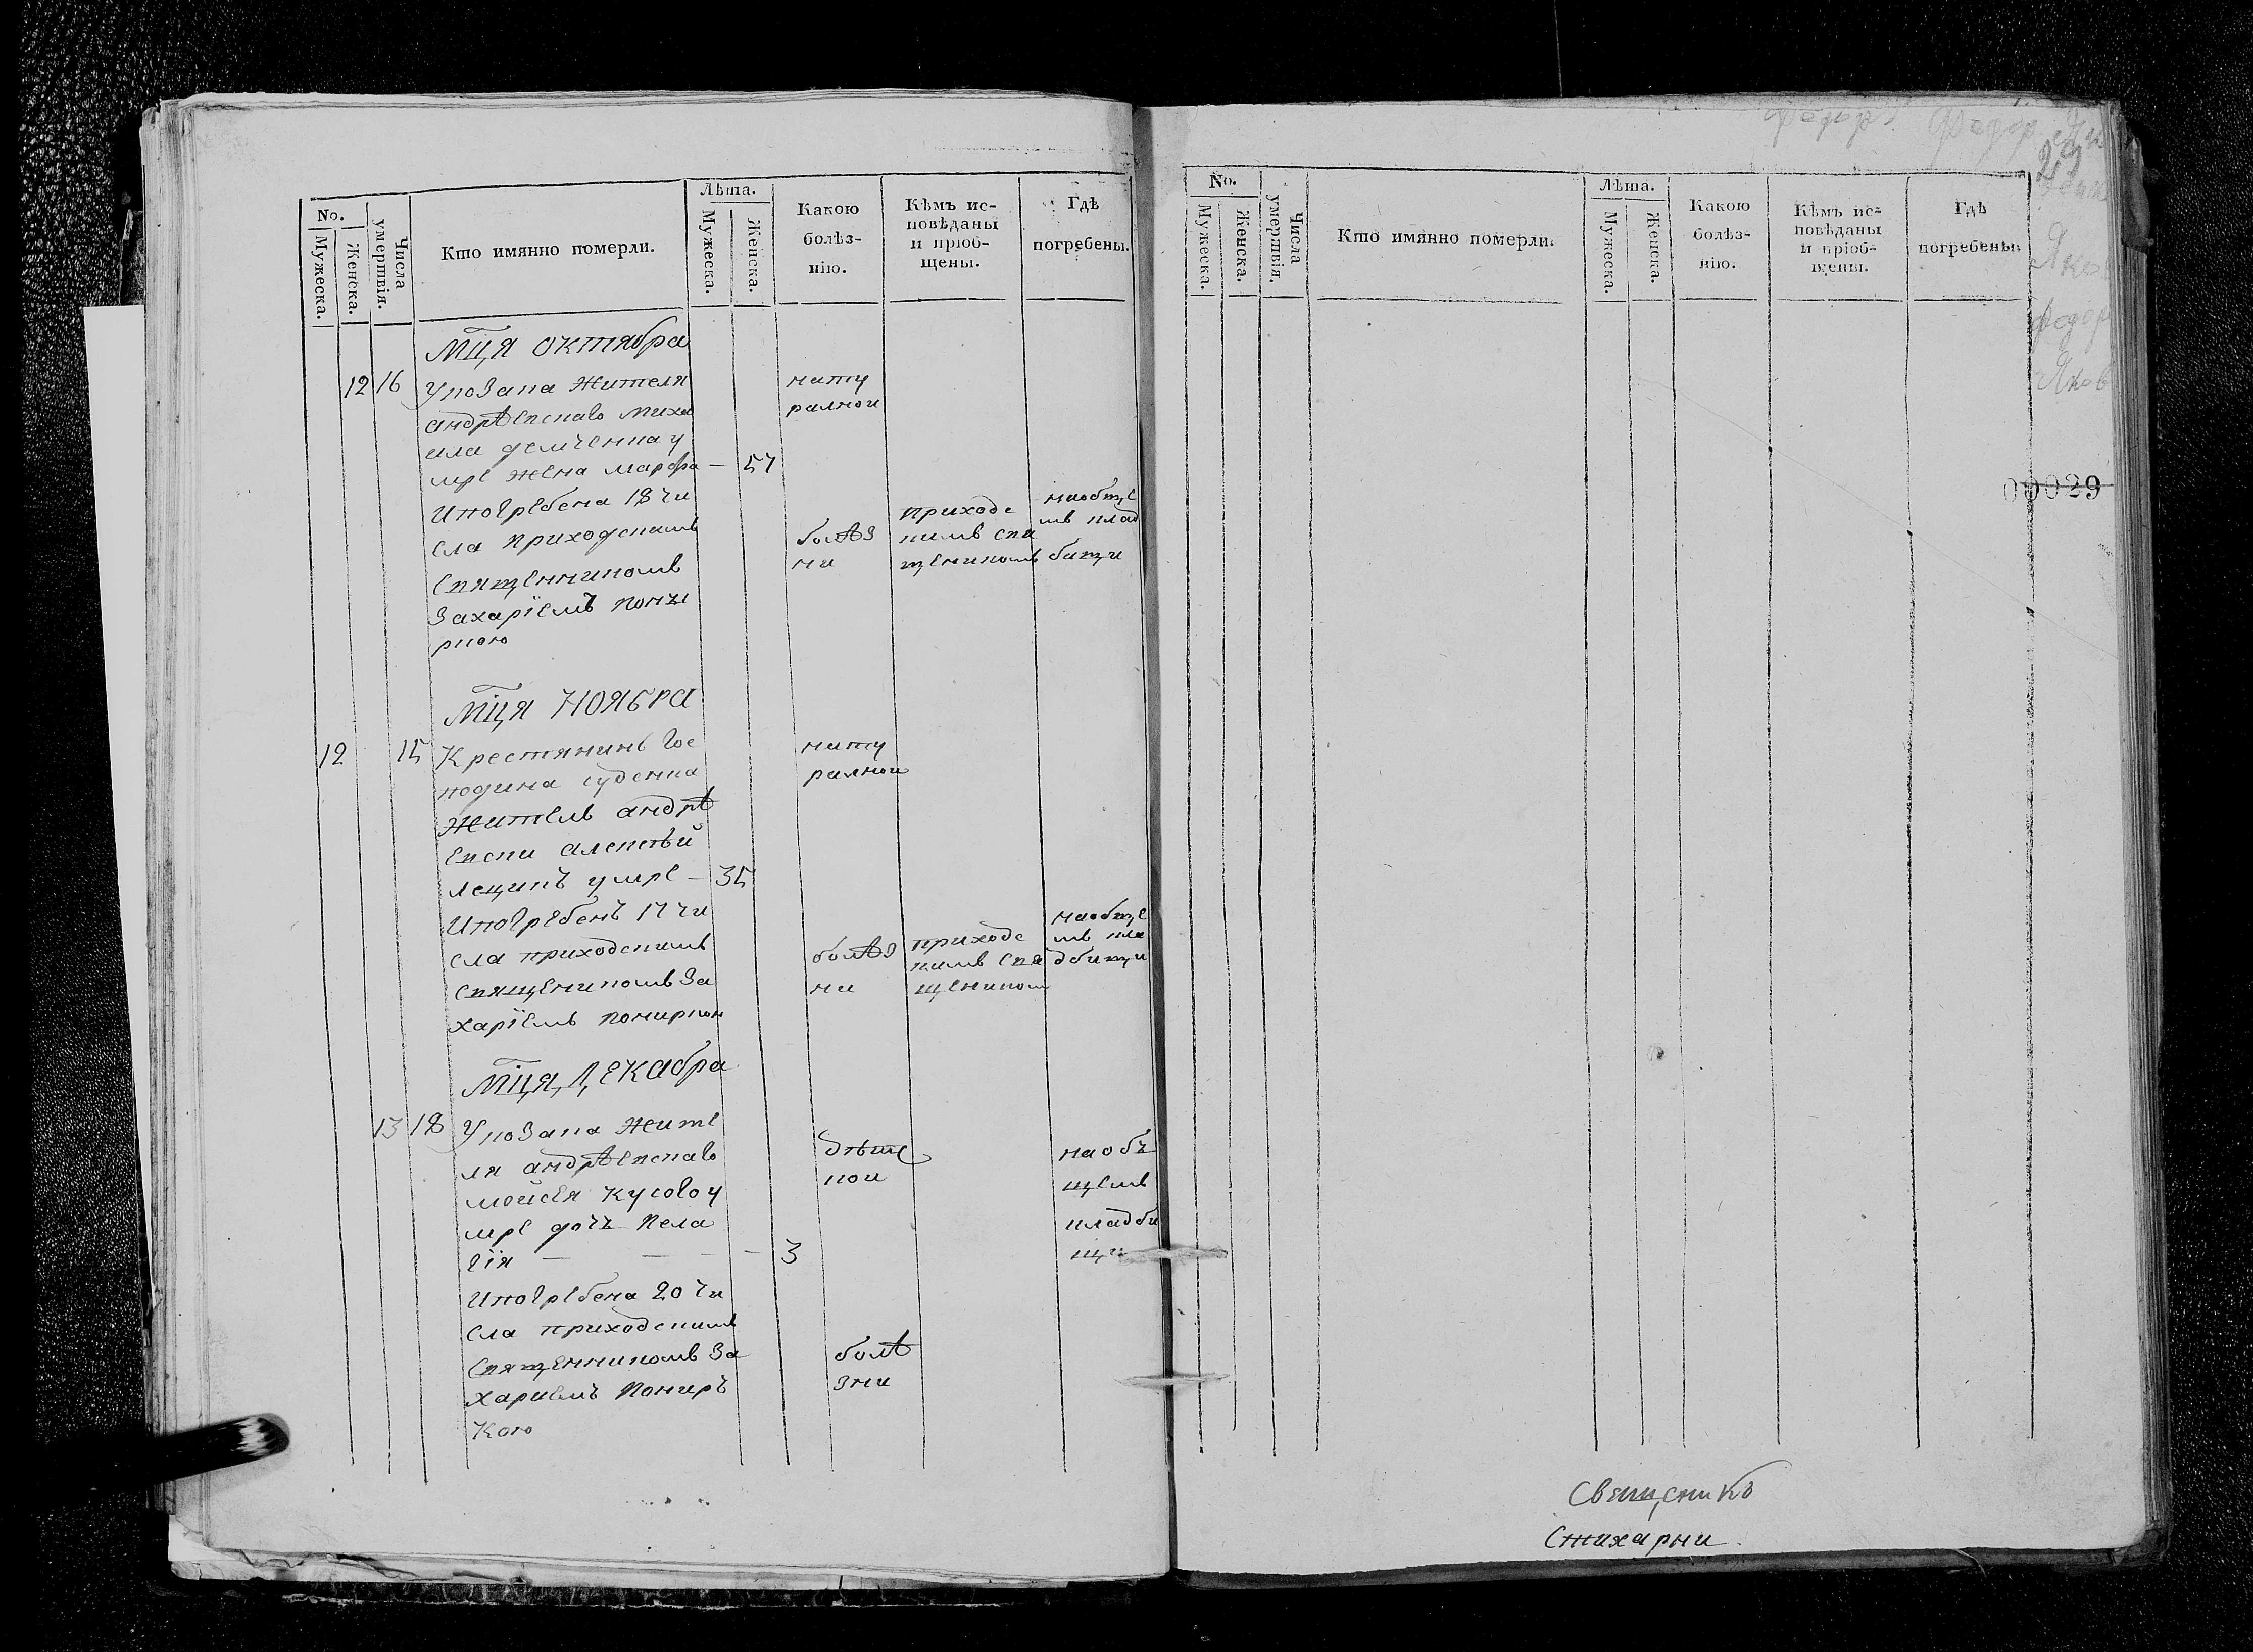 No.
Мужеска.
Женска.
Числа умертвія.
Кто имянно померли.
Лѣта.
Мужеска.
Женска.
Какою болѣз-
нію.
Кѣмъ ис-
повѣданы
и пріоб-
щены.
Гдѣ
погребены.
Мця октября
12 16 Уковака жителя
андрѣевскаво миха
ила демченка у
мре жена марфа — 57
Ипогребена 18 чи
сла приходскимъ
священникомъ
Захаріемъ
нату
ралнои
болѣз
ни
приходс
кимъ свя
щеникомъ
наобще
мъ клад
бищи
Мця Ноября
12 15 Крестянинъ гос
подина суденка
Житель андрѣ
евски алексѣй
умре — 35
Ипогребенъ 17 чи
сла приходскимъ
священикомъ За
харіемъ
нату
ралнои
болѣз
ни
приходс
кимъ свя
щеником
наобще
мъ кла
дбищи
Мця Декабря
13 18 Уковака жите
ля андрѣевскаво
мойсея Кусово у
мре дочъ Пела
гія — — — — 3
Ипогребена 20 чи
сла приходскимъ
священникомъ За
хариемъ
дѣтс
кои
болѣ
зни
наобъ
щемъ
кладби
щи
No.
Мужеска.
Женска.
Числа умертвія.
Кто имянно померли.
Лѣта.
Мужеска.
Женска.
Какою
болѣз-
нію.
Кѣмъ ис-
повѣданы
и пріоб-
щены.
Гдѣ
погребены.
Федор
Федор
29
Яков
Федор
Яков
00029
Священикъ
Стихарни